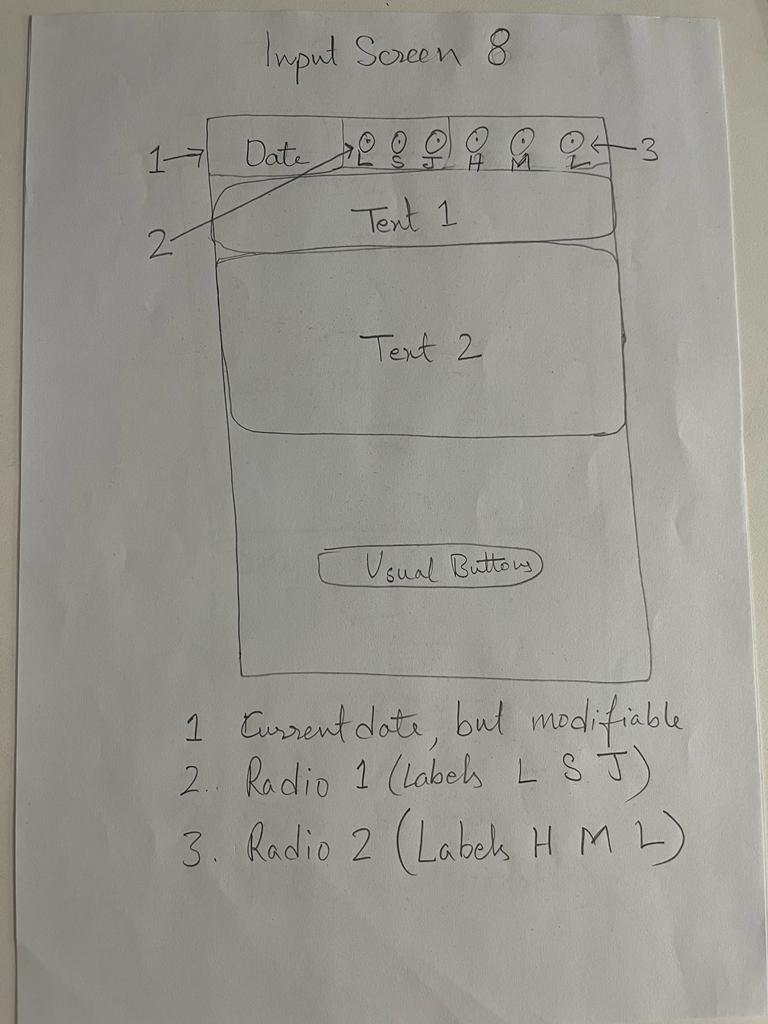 Input Screen 8
1 Date L S J H M L 3
2 Text 1
Text 2
Usual Buttons
1 Current date, but modifiable
2. Radio 1 (Labels L S J)
3. Radio 2 (Labels H M L)